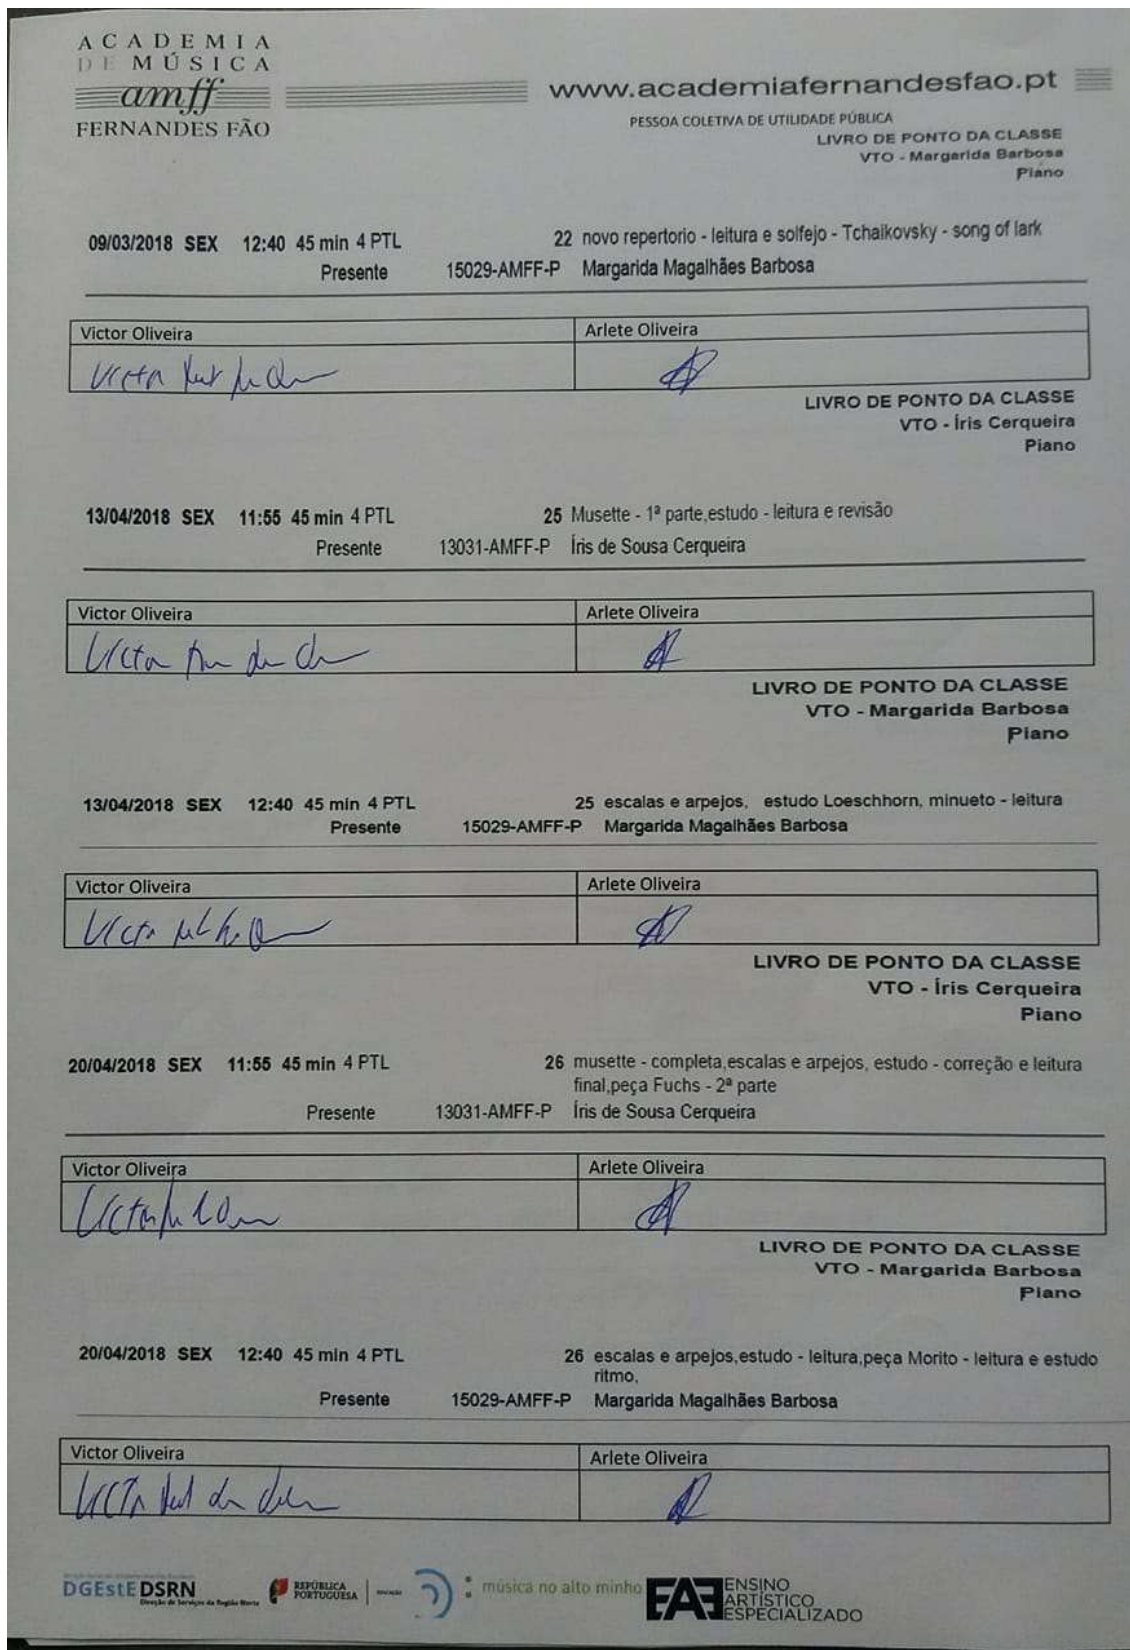 ACADEMIA
DE MÚSICA
amff
FERNANDES FÃO
www.academiafernandesfao.pt
PESSOA COLETIVA DE UTILIDADE PÚBLICA
LIVRO DE PONTO DA CLASSE
VTO - Margarida Barbosa
Piano
09/03/2018 SEX 12:40 45 min 4 PTL 22 novo repertorio - leitura e solfejo - Tchaikovsky - song of lark
Presente 15029-AMFF-P Margarida Magalhães Barbosa
Victor Oliveira Arlete Oliveira
LIVRO DE PONTO DA CLASSE
VTO - Íris Cerqueira
Piano
13/04/2018 SEX 11:55 45 min 4 PTL 25 Musette - 1ª parte,estudo - leitura e revisão
Presente 13031-AMFF-P Íris de Sousa Cerqueira
Victor Oliveira Arlete Oliveira
Victor
LIVRO DE PONTO DA CLASSE
VTO - Margarida Barbosa
Piano
13/04/2018 SEX 12:40 45 min 4 PTL 25 escalas e arpejos, estudo Loeschhorn, minueto - leitura
Presente 15029-AMFF-P Margarida Magalhães Barbosa
Victor Oliveira Arlete Oliveira
LIVRO DE PONTO DA CLASSE
VTO - Íris Cerqueira
Piano
20/04/2018 SEX 11:55 45 min 4 PTL 26 musette - completa,escalas e arpejos, estudo - correção e leitura
final,peça Fuchs - 2ª parte
Presente 13031-AMFF-P Íris de Sousa Cerqueira
Victor Oliveira Arlete Oliveira
LIVRO DE PONTO DA CLASSE
VTO - Margarida Barbosa
Piano
20/04/2018 SEX 12:40 45 min 4 PTL 26 escalas e arpejos,estudo - leitura,peça Morito - leitura e estudo
ritmo,
Presente 15029-AMFF-P Margarida Magalhães Barbosa
Victor Oliveira Arlete Oliveira
DGEstE DSRN
Direção de Serviços da Região Norte
REPÚBLICA
PORTUGUESA
música no alto minho
EAE ENSINO
ARTÍSTICO
ESPECIALIZADO